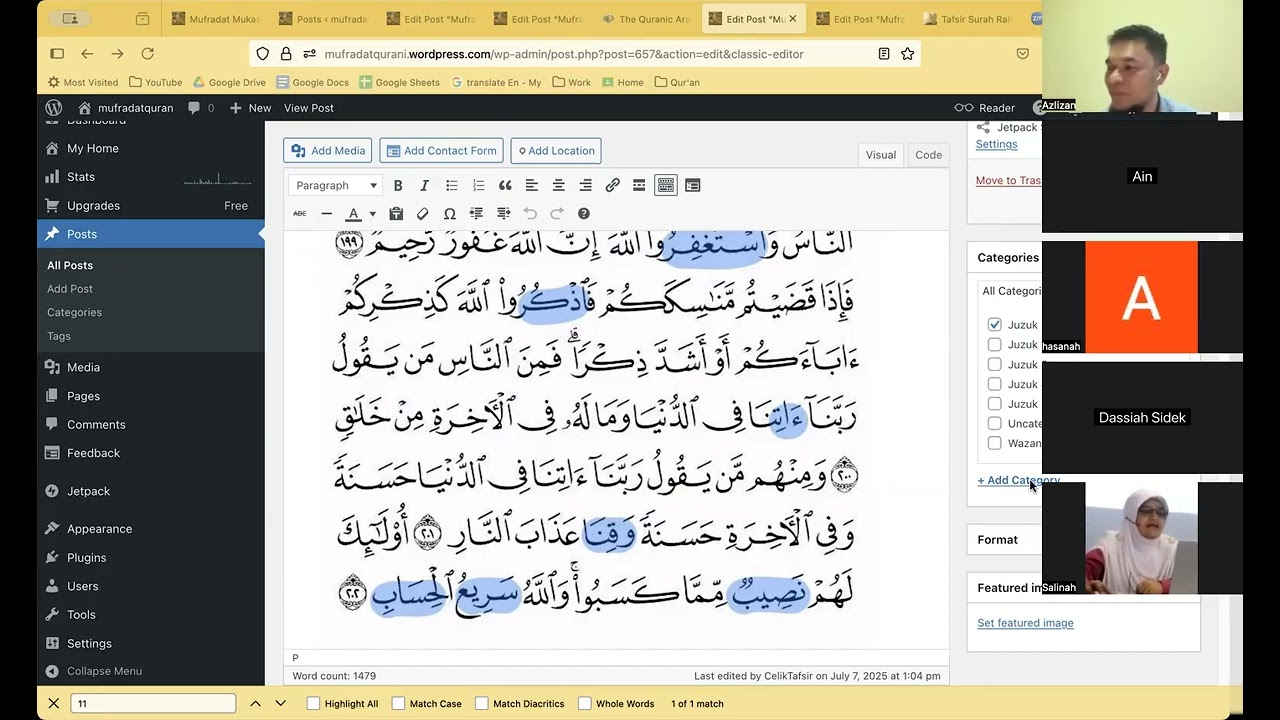 Mufradat Mukas
Posts ‹ mufrada
Edit Post "Mufra
Edit Post "Mufra
The Quranic Ara
Edit Post "Mu
Edit Post "Mufra
Tafsir Surah Rah
mufradatqurani.wordpress.com/wp-admin/post.php?post=657&action=edit&classic-editor
Most Visited
YouTube
Google Drive
Google Docs
Google Sheets
translate En - My
Work
Home
Qur'an
mufradatquran
0
New
View Post
Reader
Dashboard
My Home
Stats
Upgrades
Free
Posts
All Posts
Add Post
Categories
Tags
Media
Pages
Comments
Feedback
Jetpack
Appearance
Plugins
Users
Tools
Settings
Collapse Menu
Add Media
Add Contact Form
Add Location
Visual
Code
Paragraph
B
I
ABC
A
ٱلنَّاسُ وَٱسْتَغْفِرُوا۟ ٱللَّهَ إِنَّ ٱللَّهَ غَفُورٌ رَّحِيمٌ ١٩٩
فَإِذَا قَضَيْتُم مَّنَٰسِكَكُمْ فَٱذْكُرُوا۟ ٱللَّهَ كَذِكْرِكُمْ
ءَابَآءَكُمْ أَوْ أَشَدَّ ذِكْرًا ۗ فَمِنَ ٱلنَّاسِ مَن يَقُولُ
رَبَّنَآ ءَاتِنَا فِى ٱلدُّنْيَا وَمَا لَهُۥ فِى ٱلْءَاخِرَةِ مِنْ خَلَٰقٍ
٢٠٠ وَمِنْهُم مَّن يَقُولُ رَبَّنَآ ءَاتِنَا فِى ٱلدُّنْيَا حَسَنَةً
وَفِى ٱلْءَاخِرَةِ حَسَنَةً وَقِنَا عَذَابَ ٱلنَّارِ ٢٠١ أُو۟لَٰٓئِكَ
لَهُمْ نَصِيبٌ مِّمَّا كَسَبُوا۟ ۚ وَٱللَّهُ سَرِيعُ ٱلْحِسَابِ ٢٠٢
P
Word count: 1479
Last edited by CelikTafsir on July 7, 2025 at 1:04 pm
Jetpack
Settings
Move to Tras
Categories
All Categori
Juzuk
Juzuk
Juzuk
Juzuk
Juzuk
Uncate
Wazan
+ Add Category
Format
Featured im
Set featured image
Azlizan
Ain
A
hasanah
Dassiah Sidek
Salinah
11
Highlight All
Match Case
Match Diacritics
Whole Words
1 of 1 match